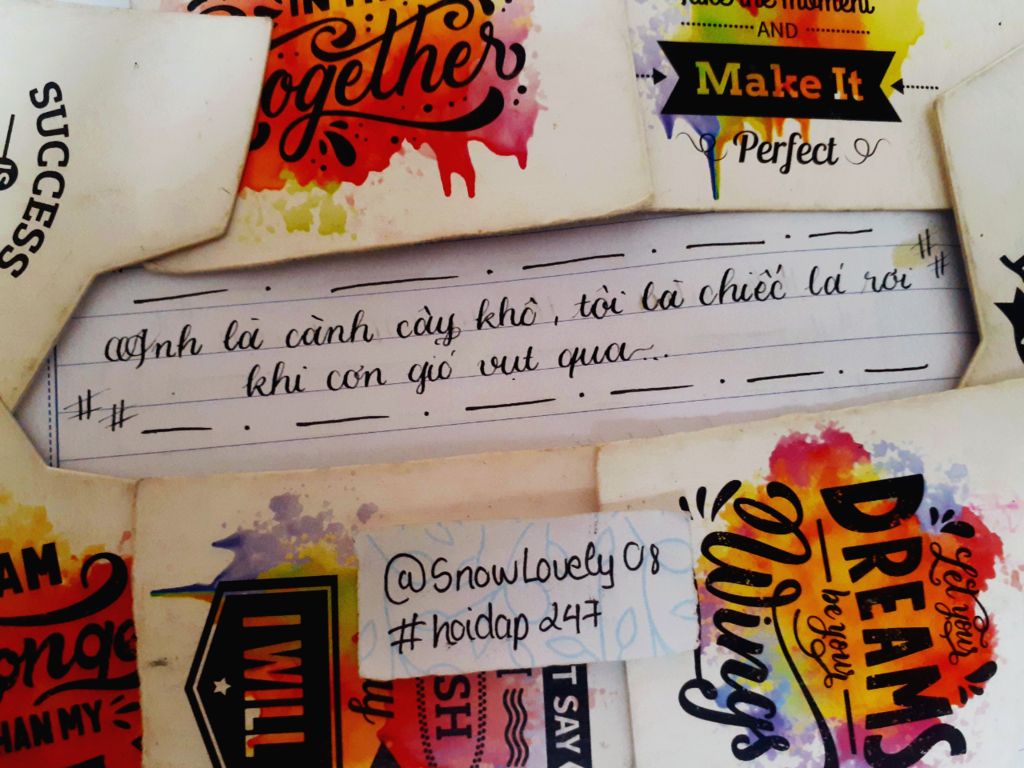 SUCCESS
IN
together
AND
Make It
Perfect
Anh là cành cây khô, tôi là chiếc lá rơi
khi cơn gió vụt qua...
@SnowLovely08
#hoidap247
AM
HAN MY
I WILL
SH
T SAY
Let your
DREAMS
be your
Wings